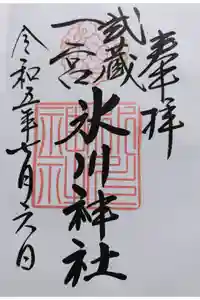 奉拝
武蔵
一宮
氷川神社
令和五年七月六日